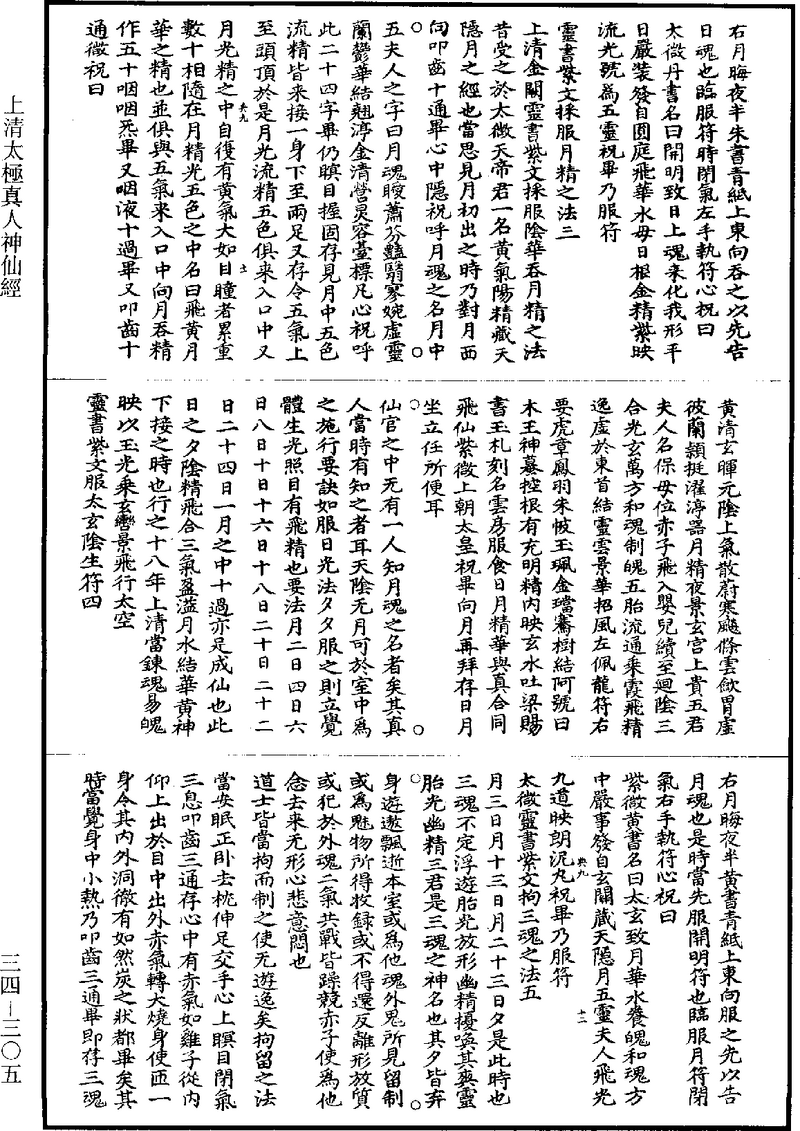 上清太極真人神仙經
三四—三〇五
右月晦夜半朱書青紙上東向吞之以先告
日魂也臨服符時閉氣左手執符心祝曰
太微丹書名曰開明致日上魂來化我形平
日嚴裝發自圓庭飛華水母日根金精紫映
流光號為五靈祝畢乃服符
靈書紫文採服月精之法三
上清金闕靈書紫文採服陰華吞月精之法
昔受之於太微天帝君一名黃氣陽精藏天
隱月之經也當思見月初出之時乃對月西
向叩齒十通畢心中隱祝呼月魂之名月中
五夫人之字曰月魂曖蕭芬豔翳寥婉虛靈
蘭鬱華結翹淳金清營炅容臺標凡心祝呼
此二十四字畢仍瞑目握固存見月中五色
流精皆來接一身下至兩足又存令五氣上
至頭頂於是月光流精五色俱來入口中又
月光精之中自復有黃氣大如目瞳者累重
數十相隨在月精光五色之中名曰飛黃月
華之精也並俱與五氣來入口中向月吞精
作五十咽咽炁畢又咽液十過畢又叩齒十
通微祝曰
黃清玄暉元陰上氣散蔚寒飇條雲歛胃虛
彼蘭穎挺濯渟器月精夜景玄宮上貴五君
夫人各保母位赤子飛入嬰兒續至迴陰三
合光玄萬方和魂制魄五胎流通乘霞飛精
逸虛於東首結靈雲景華招風左佩龍符右
要虎章鳳羽朱帔玉珮金璫騫樹結阿號曰
木王神蟇控根有充明精內映玄水吐梁賜
書玉札刻名雲房服食日月精華與真合同
飛仙紫微上朝太皇祝畢向月再拜存日月
坐立任所便耳
仙官之中无有一人知月魂之名者矣其真
人當時有知之者耳天陰无月可於室中為
之施行要訣如服日光法夕夕服之則立覺
體生光照目有飛精也要法月二日四日六
日八日十日十六日十八日二十日二十二
日二十四日一月之中十過亦足成仙也此
日之夕陰精飛合三氣盈溢月水結華黃神
下接之時也行之十八年上清當鍊魂易魄
映以玉光乘玄轡景飛行太空
靈書紫文服太玄陰生符四
右月晦夜半黃書青紙上東向服之先以告
月魂也是時當先服開明符也臨服月符閉
氣右手執符心祝曰
紫微黃書名曰太玄致月華水養魄和魂方
中嚴事發自玄關藏天隱月五靈夫人飛光
九道映朗泥丸祝畢乃服符
太微靈書紫文拘三魂之法五
月三日月十三日月二十三日夕是此時也
三魂不定浮遊胎光放形幽精擾喚其爽靈
胎光幽精三君是三魂之神名也其夕皆弃
身遊遨飄逝本室或為他魂外鬼所見留制
或為魅物所得收録或不得還反離形放質
或犯於外魂二氣共戰皆躁競赤子使為他
念去來无形心悲意悶也
道士皆當拘而制之使无遊逸矣拘留之法
當安眠正卧去枕伸足交手心上瞑目閉氣
三息叩齒三通存心中有赤氣如雞子從內
仰上出於目中出外赤氣轉大燒身使匝一
身令其內外洞徹有如然炭之狀都畢矣其
時當覺身中小熱乃叩齒三通畢即存三魂